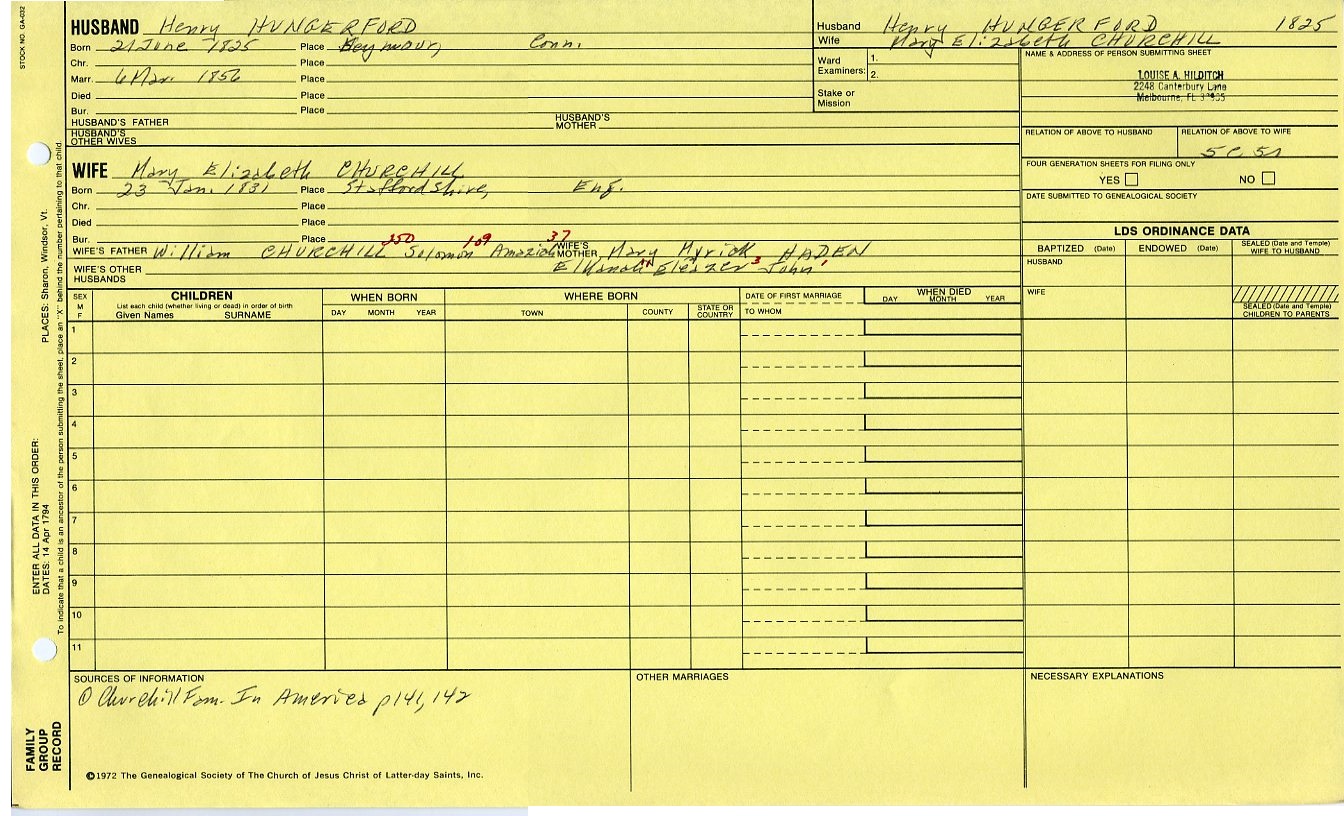 STOCK NO. GA-032
HUSBAND Henry HUNGERFORD
Born 21 June 1825 Place Seymour, Conn.
Chr. Place
Marr. 6 Mar. 1856 Place
Died Place
Bur. Place
HUSBAND'S FATHER HUSBAND'S MOTHER
HUSBAND'S OTHER WIVES
Husband Henry HUNGERFORD 1825
Wife Mary Elizabeth CHURCHILL
Ward Examiners: 1.
2.
Stake or Mission
NAME & ADDRESS OF PERSON SUBMITTING SHEET
LOUISE A. HILDITCH
2248 Canterbury Lane
Melbourne, FL
RELATION OF ABOVE TO HUSBAND RELATION OF ABOVE TO WIFE
FOUR GENERATION SHEETS FOR FILING ONLY
YES NO
DATE SUBMITTED TO GENEALOGICAL SOCIETY
WIFE Mary Elizabeth CHURCHILL
Born 23 Jan. 1831 Place Staffordshire, Eng.
Chr. Place
Died Place
Bur. Place
350 109 37
WIFE'S FATHER William CHURCHILL Solomon Amaziah WIFE'S MOTHER Mary Myrick HADEN
Elkanah Eleazer 3 John 1
WIFE'S OTHER HUSBANDS
LDS ORDINANCE DATA
BAPTIZED (Date) ENDOWED (Date) SEALED (Date and Temple) WIFE TO HUSBAND
HUSBAND
WIFE
SEALED (Date and Temple) CHILDREN TO PARENTS
SEX M F
CHILDREN
List each child (whether living or dead) in order of birth
Given Names SURNAME
WHEN BORN
DAY MONTH YEAR
WHERE BORN
TOWN COUNTY STATE OR COUNTRY
DATE OF FIRST MARRIAGE
TO WHOM
WHEN DIED
DAY MONTH YEAR
1
2
3
4
5
6
7
8
9
10
11
SOURCES OF INFORMATION
① Churchill Fam. In America p141, 142
OTHER MARRIAGES
NECESSARY EXPLANATIONS
©1972 The Genealogical Society of The Church of Jesus Christ of Latter-day Saints, Inc.
FAMILY GROUP RECORD
ENTER ALL DATA IN THIS ORDER:
DATES: 14 Apr 1794
PLACES: Sharon, Windsor, Vt.
To indicate that a child is an ancestor of the person submitting the sheet, place an "X" behind the number pertaining to that child.